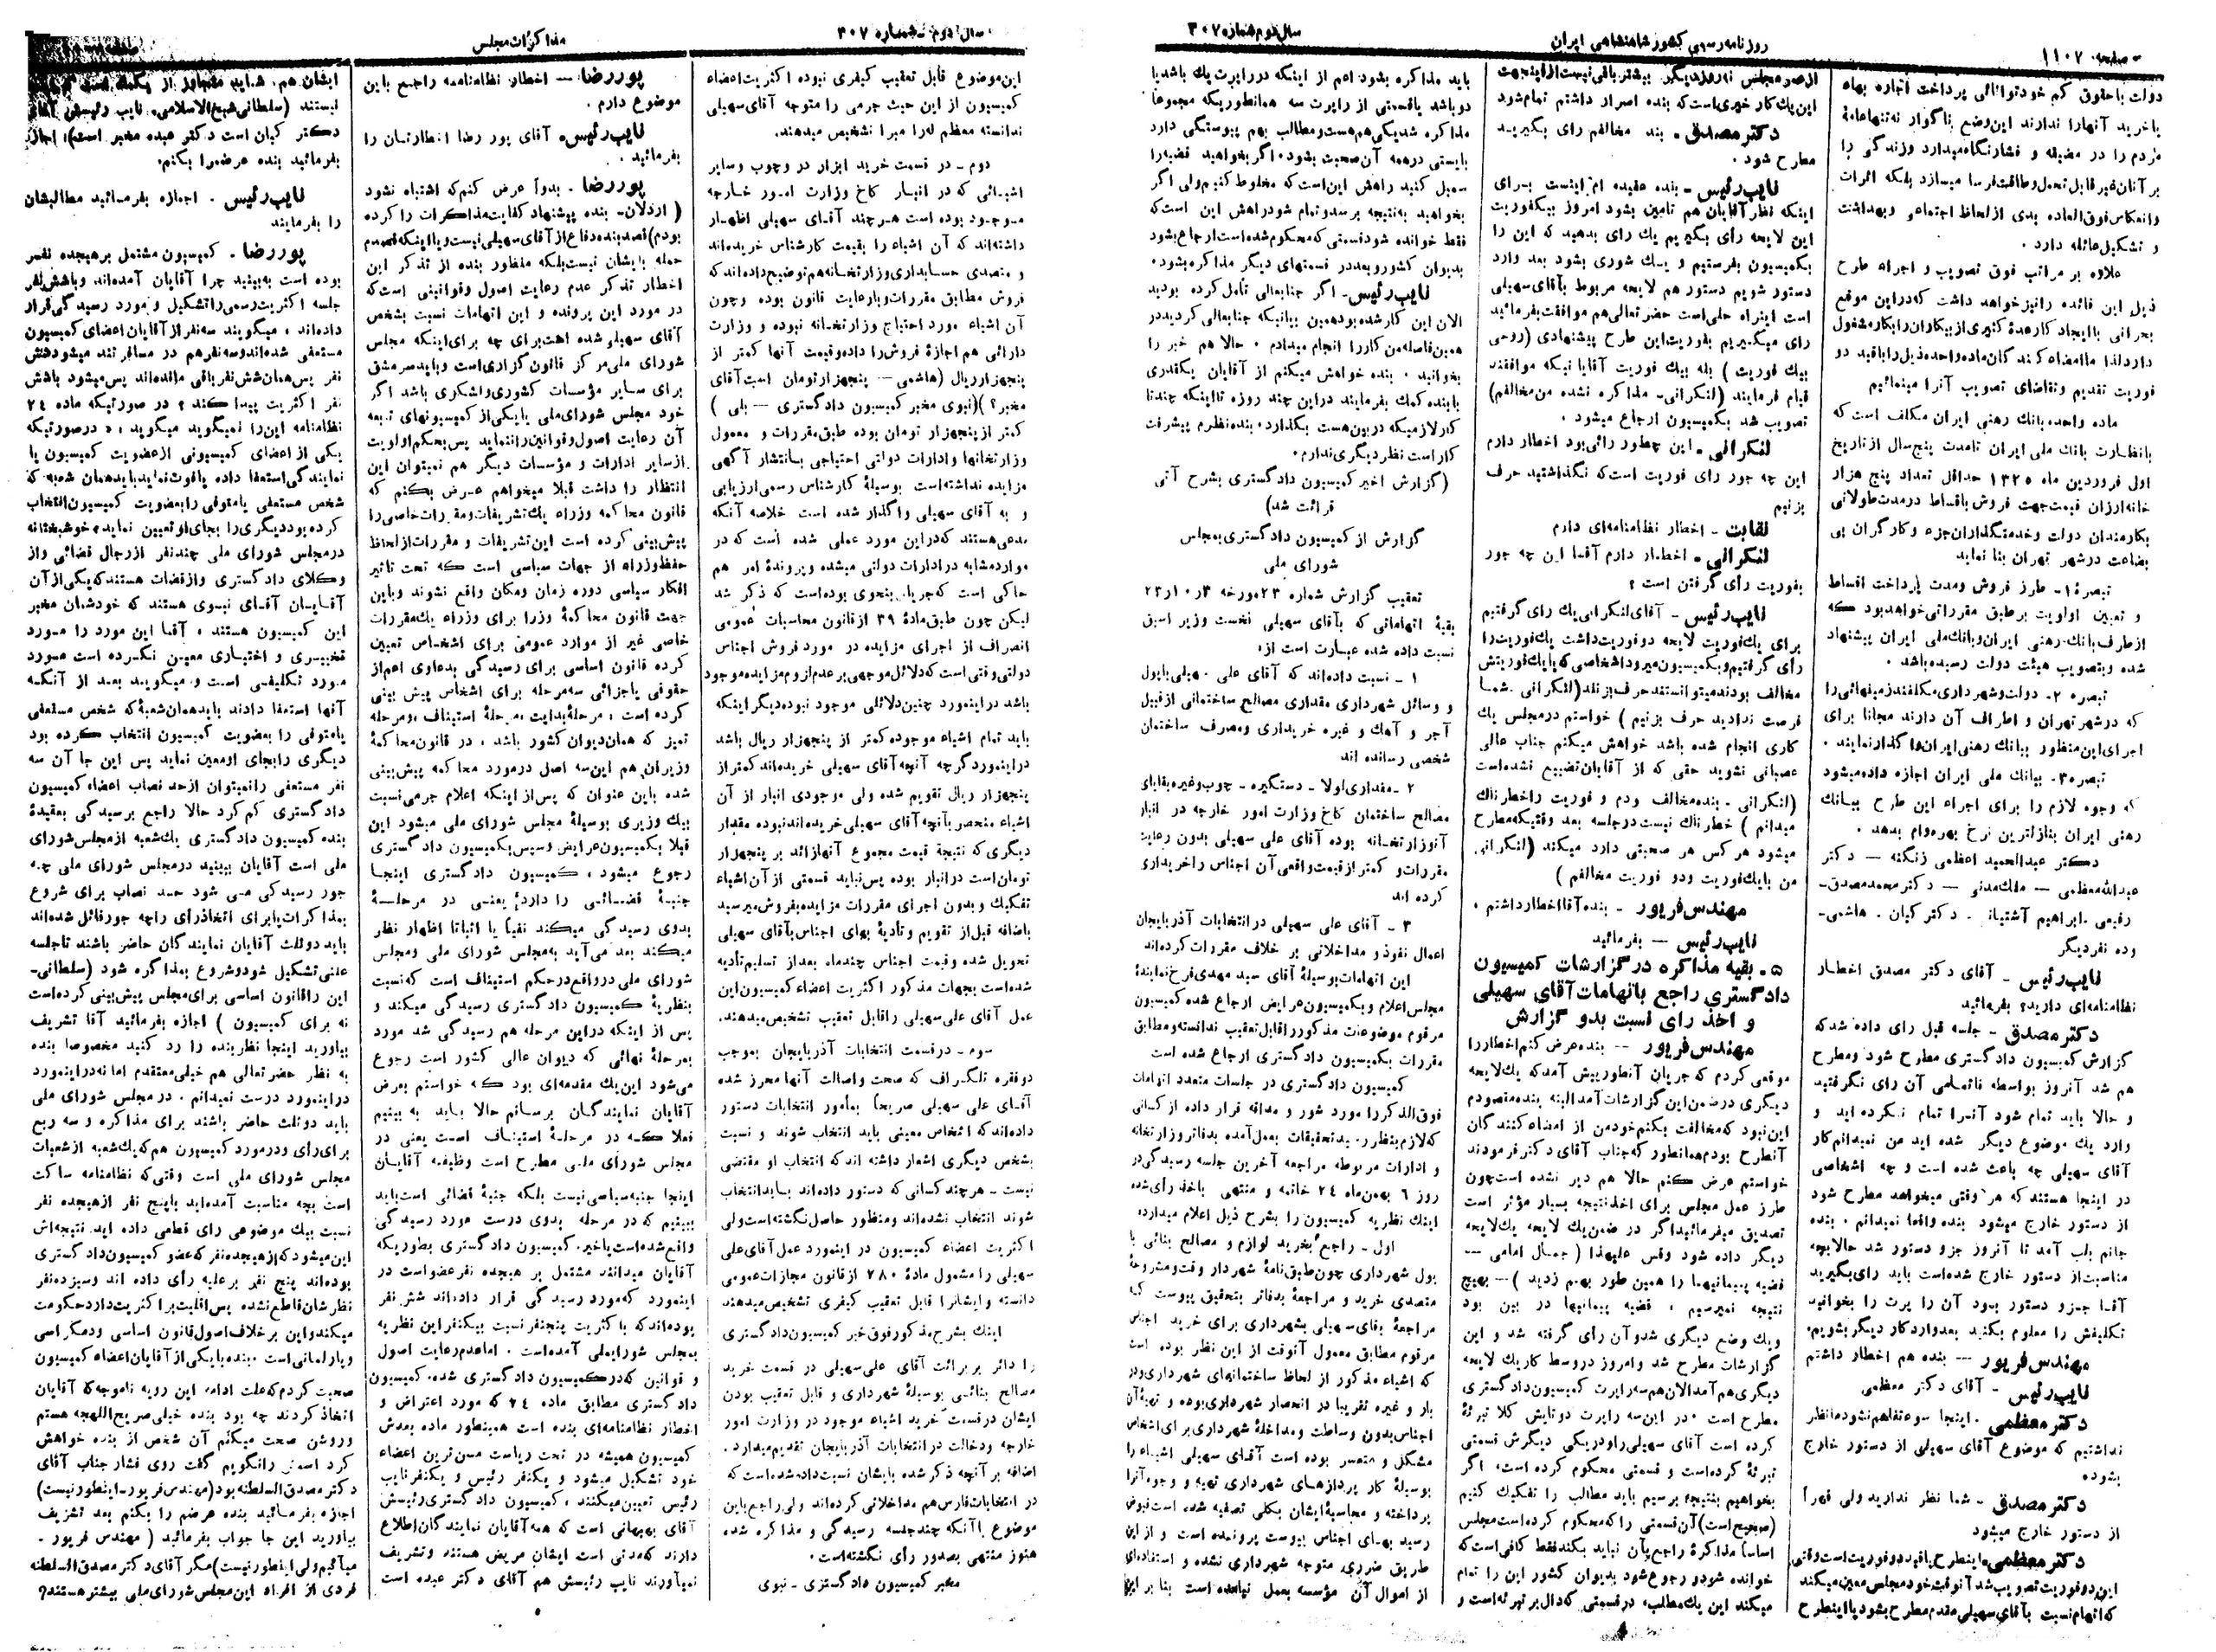 صفحه ۱۱۰۷
روزنامه رسمی کشور شاهنشاهی ایران
سال دوم شماره ۳۰۷
دولت با حقوق کم خود توانائی پرداخت اجاره بهاء
یا خرید آنها را ندارند این وضع ناگوار نه تنها عامهٔ
مردم را در مضیقه و فشار نگاه میدارد و زندگی را
بر آنان غیر قابل تحمل و طاقت فرسا میسازد بلکه اثرات
و انعکاس فوق العاده بدی از لحاظ اجتماعی و بهداشت
و تشکیل عائله دارد .
علاوه بر مراتب فوق تصویب و اجراء طرح
ذیل این فائده را نیز خواهد داشت که در این موقع
بحرانی با ایجاد کار عدهٔ کثیری از بیکاران را بکار مشغول
دارد لذا ما امضاء کنندگان ماده واحده ذیل را با قید دو
فوریت تقدیم و تقاضای تصویب آنرا مینمائیم
ماده واحده بانک رهنی ایران مکلف است که
با نظارت بانک ملی ایران تا مدت پنج سال از تاریخ
اول فروردین ماه ۱۳۲۵ حداقل تعداد پنج هزار
خانه ارزان قیمت جهت فروش باقساط در مدت طولانی
بکارمندان دولت و خدمتگذاران جزء و کارگران بی
بضاعت در شهر تهران بنا نماید
تبصرهٔ ۱ـ طرز فروش و مدت پرداخت اقساط
و تعیین اولویت بر طبق مقرراتی خواهد بود که
از طرف بانک رهنی ایران و بانک ملی ایران پیشنهاد
شده و بتصویب هیئت دولت رسیده باشد .
تبصره ۲ـ دولت و شهرداری مکلفند زمینهائی را
که در شهر تهران و اطراف آن دارند مجانا برای
اجرای این منظور ببانک رهنی ایران واگذار نمایند .
تبصره ۳ـ ببانک ملی ایران اجازه داده میشود
که وجوه لازم را برای اجراء این طرح ببانک
رهنی ایران بنازلترین نرخ بهره وام بدهد .
دکتر عبدالحمید اعظمی زنگنه — دکتر
عبدالله معظمی — ملک مدنی — دکتر محمد مصدق —
رفیعی . ابراهیم آشتیانی . دکتر کیان . هاشمی ـ
و ده نفر دیگر
نایب رئیس ـ آقای دکتر مصدق اخطار
نظامنامه ای دارید؟ بفرمائید
دکتر مصدق ـ جلسه قبل رای داده شد که
گزارش کمیسیون دادگستری مطرح شود و مطرح
هم شد آنروز بواسطه ناتمامی آن رای نگرفتید
و حالا باید تمام شود آنرا تمام نکرده اید و
وارد یک موضوع دیگر شده اید من نمیدانم کار
آقای سهیلی چه باعث شده است و چه اشخاصی
در اینجا هستند که هر وقتی میخواهد مطرح شود
از دستور خارج میشود بنده واقعا نمیدانم . بنده
جانم بلب آمد تا آنروز جزو دستور شد حالا بچه
مناسبت از دستور خارج شده است باید رای بگیرید
آقا جزو دستور بود آن را پرت را بخوانید
تکلیفش را معلوم بکنید بعد وارد کار دیگر بشویم .
مهندس فریور — بنده هم اخطار داشتم
نایب رئیس ـ آقای دکتر معظمی
دکتر معظمی . اینجا سوء تفاهم نشود ما نظر
نداشتیم که موضوع آقای سهیلی از دستور خارج
بشود
دکتر مصدق ـ شما نظر ندارید ولی قهراً
از دستور خارج میشود
دکتر معظمی . این طرح با قید دو فوریت است وقتی
این دو فوریت تصویب شد آنوقت خود مجلس معین میکند
که اتهام نسبت بآقای سهیلی مقدم مطرح بشود یا این طرح
از عمر مجلس نه روز دیگر بیشتر باقی نیست از اینجهت
این یک کار خیری است که بنده اصرار داشتم تمام شود
دکتر مصدق . بنده مخالفم رای بگیرید
مطرح شود .
نایب رئیس ـ بنده عقیده ام اینست برای
اینکه نظر آقایان هم تأمین بشود امروز بیک فوریت
این لایحه رأی بگیریم یک رای بدهید که این را
بکمیسیون بفرستیم و یک شوری بشود بعد وارد
دستور شویم دستور هم لایحه مربوط بآقای سهیلی
است اینراه حلی است حضرتعالی هم موافقت بفرمائید
رای میگیریم بفوریت این طرح پیشنهادی (روحی
بیک فوریت ) بله بیک فوریت آقایانیکه موافقند
قیام فرمایند (لنکرانی ـ مذاکره نشده من مخالفم)
تصویب شد بکمیسیون ارجاع میشود .
لنکرانی . این چطور رائی بود اخطار دارم
این چه جور رای فوریت است که نگذاشتید حرف
بزنیم
نقابت ـ اخطار نظامنامه ای دارم
لنکرانی . اخطار دارم آقا این چه جور
بفوریت رأی گرفتن است ؟
نایب رئیس ـ آقای لنکرانی یک رای گرفتیم
برای یک فوریت لایحه دو فوریت داشت یک فوریت را
رأی گرفتیم و بکمیسیون میرود اشخاصی که با یک فوریتش
مخالف بودند میتوانستند حرف بزنند (لنکرانی . شما
فرصت ندادید حرف بزنیم ) خواستم در مجلس یک
کاری انجام شده باشد خواهش میکنم جناب عالی
عصبانی نشوید حقی که از آقایان تضییع نشده است
(لنکرانی ـ بنده مخالف بودم و فوریت را خطرناک
میدانم ) خطرناک نیست در جلسه بعد وقتیکه مطرح
میشود هر کس هر صحبتی دارد میکند (لنکرانی .
من با یک فوریت و دو فوریت مخالفم )
مهندس فریور ـ بنده آقا اخطار داشتم .
نایب رئیس — بفرمائید
۵ـ بقیه مذاکره در گزارشات کمیسیون
دادگستری راجع باتهامات آقای سهیلی
و اخذ رای نسبت بدو گزارش
مهندس فریور — بنده عرض کنم اخطار را
موقعی کردم که جریان آنطور پیش آمد که یک لایحه
دیگری در ضمن این گزارشات آمد البته بنده مقصودم
این نبود که مخالفت بکنم خود من از امضاء کنندگان
آنطرح بودم همانطور که جناب آقای دکتر فرمودند
خواستم عرض کنم حالا هم دیر نشده است چون
طرز عمل مجلس برای اخذ نتیجه بسیار مؤثر است
تصدیق میفرمائید اگر در ضمن یک لایحه یک لایحه
دیگر داده شود وقس علیهذا ( جمال امامی —
قضیه پیمانیها را همین طور بهم زدید ) — بهیچ
نتیجه نمیرسیم ، قضیه پیمانیها در بین بود
و یک وضع دیگری شد و آن رأی گرفته شد و این
گزارشات مطرح شد و امروز در وسط کار یک لایحه
دیگری هم آمد الان هم سه راپرت کمیسیون دادگستری
مطرح است . در این سه راپرت دوتایش کلا تبرئهٔ
کرده است آقای سهیلی را و در یکی دیگرش قسمتی
تبرئهٔ کرده است و قسمتی محکوم کرده است ، اگر
بخواهیم بنتیجه برسیم باید مطالب را تفکیک کنیم
(صحیح است) آن قسمتی را که محکوم کرده است مجلس
اساساً مذاکرهٔ راجع بآن نباید بکند فقط کافی است که
خوانده شود و رجوع شود بدیوان کشور این را تمام
میکند این یک مطلب . در قسمتی که دال بر تبرئه است و
باید مذاکره بشود اعم از اینکه دو راپرت یک باشد یا
دو باشد یا قسمتی از راپرت سه همانطوریکه مجموعا
مذاکره شد یکی هم هست و مطالب بهم پیوستگی دارد
بایستی در همه آن صحبت بشود . اگر بخواهید قضیه را
سمبل کنید راهش این است که مخلوط کنیم ولی اگر
بخواهید به نتیجه برسد و تمام شود راهش این است که
فقط خوانده شود قسمتی که محکوم شده است ارجاع بشود
بدیوان کشور و بعد در قسمتهای دیگر مذاکره بشود .
نایب رئیس ـ اگر جنابعالی تأمل کرده بودید
الان این کار شده بود همین بیانیکه جنابعالی کردید در
همین فاصله من کار را انجام میدادم . حالا هم خبر را
بخوانید . بنده خواهش میکنم از آقایان یکقدری
با بنده کمک بفرمایند در این چند روزه تا اینکه چند تا
کار لازم که در بین هست بگذارد . بنده نظرم پیشرفت
کار است نظر دیگری ندارم .
(گزارش اخیر کمیسیون دادگستری بشرح آتی
قرائت شد)
گزارش از کمیسیون دادگستری بمجلس
شورای ملی
تعقیب گزارش شماره ۲۳ مورخه ۲۳/۱۰/۴
بقیهٔ اتهاماتی که بآقای سهیلی نخست وزیر اسبق
نسبت داده شده عبارت است از :
۱ ـ نسبت داده اند که آقای علی سهیلی با پول
و وسائل شهرداری مقداری مصالح ساختمانی از قبیل
آجر و آهک و غیره خریداری و بمصرف ساختمان
شخصی رسانده اند
۲ ـ مقداری لولا ـ دستگیره ـ چوب و غیره بقایای
مصالح ساختمان کاخ وزارت امور خارجه در انبار
آنوزارتخانه بوده آقای علی سهیلی بدون رعایت
مقررات و کمتر از قیمت واقعی آن اجناس را خریداری
کرده اند
۳ ـ آقای علی سهیلی در انتخابات آذربایجان
اعمال نفوذ و مداخلاتی بر خلاف مقررات کرده اند
این اتهامات بوسیلهٔ آقای سید مهدی فرخ نمایندهٔ
مجلس اعلام و بکمیسیون عرایض ارجاع شده کمیسیون
مرقوم موضوعات مذکور را قابل تعقیب ندانسته و مطابق
مقررات بکمیسیون دادگستری ارجاع شده است
کمیسیون دادگستری در جلسات متعدد اتهامات
فوق الذکر را مورد شور و مداقه قرار داده از کسانی
که لازم بنظر رسید تحقیقات بعمل آمده بدفاتر وزارتخانه
و ادارات مربوطه مراجعه آخرین جلسه رسیدگی در
روز ۶ بهمن ماه ۲۴ خاتمه و منتهی باخذ رأی شده
اینک نظریه کمیسیون را بشرح ذیل اعلام میدارد :
اول ـ راجع بخرید لوازم و مصالح بنائی با
پول شهرداری چون طبق نامهٔ شهردار وقت و مشروحهٔ
متصدی خرید و مراجعهٔ بدفاتر بتحقیق پیوست که
مراجعهٔ بآقای سهیلی بشهرداری برای خرید اجناس
مرقوم مطابق معمول آنوقت از این نظر بوده است
که اشیاء مذکور از لحاظ ساختمانهای شهرداری و در
بار و غیره تقریبا در انحصار شهرداری بوده و تهیهٔ آن
اجناس بدون وساطت و مداخلهٔ شهرداری برای اشخاص
مشکل و متعسر بوده است آقای سهیلی اشیاء را
بوسیلهٔ کار پردازهای شهرداری تهیه و وجوه آنرا
پرداخته و محاسبهٔ ایشان بکلی تصفیه شده است
رسید بهای اجناس پیوست پرونده است و از این
طریق ضرری متوجه شهرداری نشده و استفاده ای
از اموال آن مؤسسه بعمل نیامده است بنا بر این
سال دوم شماره ۳۰۷
مذاکرات مجلس
این موضوع قابل تعقیب کیفری نبوده اکثریت اعضاء
کمیسیون از این حیث جرمی را متوجه آقای سهیلی
ندانسته معظم له را مبرا تشخیص میدهند .
دوم ـ در قسمت خرید ابزار در و چوب و سایر
اشیائی که در انبار کاخ وزارت امور خارجه
موجود بوده است هر چند آقای سهیلی اظهار
داشته اند که آن اشیاء را بقیمت کارشناس خریده اند
و متصدی حسابداری وزارتخانه هم توضیح داده اند که
فروش مطابق مقررات و با رعایت قانون بوده و چون
آن اشیاء مورد احتیاج وزارتخانه نبوده و وزارت
دارائی هم اجازهٔ فروش را داده و قیمت آنها کمتر از
پنجهزار ریال (هاشمی — پنجهزار تومان است آقای
مخبر؟ )(نبوی مخبر کمیسیون دادگستری — بلی )
کمتر از پنجهزار تومان بوده طبق مقررات و معمول
وزارتخانها و ادارات دولتی احتیاجی بانتشار آگهی
مزایده نداشته است بوسیلهٔ کارشناس رسمی ارزیابی
و به آقای سهیلی واگذار شده است خلاصه آنکه
مدعی هستند که در این مورد عملی شده است که در
موارد مشابه در ادارات دولتی میشده و پروندهٔ امر هم
حاکی است که جریان بنحوی بوده است که ذکر شد
لیکن چون طبق مادهٔ ۳۹ از قانون محاسبات عمومی
انصراف از اجرای مزایده در مورد فروش اجناس
دولتی وقتی است که دلائل موجهی بر عدم لزوم مزایده موجود
باشد در اینمورد چنین دلائلی موجود نبوده دیگر اینکه
باید تمام اشیاء موجوده کمتر از پنجهزار ریال باشد
در اینمورد گرچه آنچه آقای سهیلی خریده اند کمتر از
پنجهزار ریال تقویم شده ولی موجودی انبار از آن
اشیاء منحصر بآنچه آقای سهیلی خریده اند نبوده مقدار
دیگری که نتیجهٔ قیمت مجموع آنها زائد بر پنجهزار
تومان است در انبار بوده پس نباید قسمتی از آن اشیاء
تفکیک و بدون اجرای مقررات مزایده بفروش میرسید
باضافه قبل از تقویم و تأدیهٔ بهای اجناس بآقای سهیلی
تحویل شده و قیمت اجناس چند ماه بعد از تسلیم تأدیه
شده است بجهات مذکور اکثریت اعضاء کمیسیون این
عمل آقای علی سهیلی را قابل تعقیب تشخیص میدهند .
سوم ـ در قسمت انتخابات آذربایجان بموجب
دو فقره تلگراف که صحت و اصالت آنها محرز شده
آقای علی سهیلی صریحا بمأمور انتخابات دستور
داده اند که اشخاص معینی باید انتخاب شوند و نسبت
بشخص دیگری اشعار داشته اند که انتخاب او مقتضی
نیست ـ هر چند کسانی که دستور داده اند باید انتخاب
شوند انتخاب نشده اند و منظور حاصل نگشته است ولی
اکثریت اعضاء کمیسیون در اینمورد عمل آقای علی
سهیلی را مشمول مادهٔ ۲۸۰ از قانون مجازات عمومی
دانسته و ایشانرا قابل تعقیب کیفری تشخیص میدهند
اینک بشرح مذکور فوق خبر کمیسیون دادگستری
را دائر بر برائت آقای علی سهیلی در قسمت خرید
مصالح بنائی بوسیلهٔ شهرداری و قابل تعقیب بودن
ایشان در قسمت خرید اشیاء موجود در وزارت امور
خارجه و دخالت در انتخابات آذربایجان تقدیم میدارد .
اضافه بر آنچه ذکر شده بایشان نسبت داده شده است که
در انتخابات فارس هم مداخلاتی کرده اند ولی راجع باین
موضوع با آنکه چند جلسه رسیدگی و مذاکره شده
هنوز منتهی بصدور رأی نگشته است .
مخبر کمیسیون دادگستری ـ نبوی
پوررضا — اخطار نظامنامه راجع باین
موضوع دارم .
نایب رئیس . آقای پور رضا اخطارتان را
بفرمائید .
پوررضا . بدواً عرض کنم که اشتباه نشود
( اردلان ـ بنده پیشنهاد کفایت مذاکرات را کرده
بودم) قصد بنده دفاع از آقای سهیلی نیست و یا اینکه قصدم
حمله بایشان نیست بلکه منظور بنده از تذکر این
اخطار تذکر عدم رعایت اصول و قوانینی است که
در مورد این پرونده و این اتهامات نسبت بشخص
آقای سهیلی شده است برای چه برای اینکه مجلس
شورای ملی مرکز قانون گزاری است و باید سرمشق
برای سایر مؤسسات کشوری و لشکری باشد اگر
خود مجلس شورای ملی یا یکی از کمیسیونهای تبعه
آن رعایت اصول و قوانین را ننماید پس بحکم اولویت
از سایر ادارات و مؤسسات دیگر هم نمیتوان این
انتظار را داشت قبلا میخواهم عرض بکنم که
قانون محاکمه وزراء یک تشریفات و مقررات خاصی را
پیش بینی کرده است این تشریفات و مقررات از لحاظ
حفظ وزراء از جهات سیاسی است که تحت تأثیر
افکار سیاسی دوره زمان و مکان واقع نشوند و باین
جهت قانون محاکمهٔ وزرا برای وزراء یک مقررات
خاصی غیر از موارد عمومی برای اشخاص تعیین
کرده قانون اساسی برای رسیدگی بدعاوی اعم از
حقوقی یا جزائی سه مرحله برای اشخاص پیش بینی
کرده است ، مرحلهٔ بدایت ، مرحلهٔ استیناف ، مرحله
تمیز که همان دیوان کشور باشد ، در قانون محاکمهٔ
وزیران هم این سه اصل در مورد محاکمه پیش بینی
شده باین عنوان که پس از اینکه اعلام جرمی نسبت
بیک وزیری بوسیلهٔ مجلس شورای ملی میشود این
قبلا بکمیسیون عرایض و سپس بکمیسیون دادگستری
رجوع میشود ، کمیسیون دادگستری اینجا
جنبهٔ قضائی را دارد؛ یعنی در مرحلهٔ
بدوی رسیدگی میکند نفیاً یا اثباتا اظهار نظر
میکند بعد می آید به مجلس شورای ملی و مجلس
شورای ملی در واقع در حکم استیناف است که نسبت
بنظریهٔ کمیسیون دادگستری رسیدگی میکند و
پس از اینکه در این مرحله هم رسیدگی شد مورد
بمرحلهٔ نهائی که دیوان عالی کشور است رجوع
می شود این یک مقدمه ای بود که خواستم بعرض
آقایان نمایندگان برسانم حالا باید به بینیم
فعلا که در مرحلهٔ استیناف است یعنی در
مجلس شورای ملی مطرح است وظیفه آقایان
اینجا جنبه سیاسی نیست بلکه جنبهٔ قضائی است باید
ببینیم که در مرحله بدوی درست مورد رسیدگی
واقع شده است یا خیر . کمیسیون دادگستری بطوریکه
آقایان میدانند مشتمل بر هیجده نفر عضو است در
اینمورد که مورد رسیدگی قرار داده اند شش نفر
بوده اند که با کثریت پنجنفر نسبت بیکنفر این نظریه
بمجلس شورایملی آمده است . اما عدم رعایت اصول
و قوانین که در کمیسیون دادگستری شده . کمیسیون
دادگستری مطابق ماده ۲۴ که مورد اعتراض و
اخطار نظامنامه ای بنده است همینطور ماده بعدش
کمیسیون همیشه در تحت ریاست مسن ترین اعضاء
خود تشکیل میشود و یکنفر رئیس و یکنفر نایب
رئیس تعیین میکنند ، کمیسیون دادگستری رئیسش
آقای بهبهانی است که همه آقایان نمایندگان اطلاع
دارند که مدتی است ایشان مریض هستند و تشریف
نمیآورند نایب رئیسش هم آقای دکتر عبده است
ایشان هم . شاید متجاوز از یکماه است که
نیستند (سلطانی شیخ الاسلامی . نایب رئیسش آقای
دکتر کیان است دکتر عبده مخبر است)؛ اجازه
بفرمائید بنده عرضم را بکنم .
نایب رئیس . اجازه بفرمائید مطالبشان
را بفرمایند
پوررضا . کمیسیون مشتمل بر هیجده نفر
بوده است به بینید چرا آقایان آمده اند و با شش نفر
جلسه اکثریت رسمی را تشکیل و مورد رسیدگی قرار
داده اند ، میگویند سه نفر از آقایان اعضای کمیسیون
مستعفی شده اند و سه نفر هم در مسافرتند میشود شش
نفر پس همان شش نفر باقی مانده اند پس میشود با شش
نفر اکثریت پیدا کند ؟ در صورتیکه ماده ۲۴
نظامنامه این را نمیگوید میگوید « در صورتیکه
یکی از اعضای کمیسیونی از عضویت کمیسیون یا
نمایندگی استعفا داده یا فوت نماید باید همان شعبه که
شخص مستعفی یا متوفی را بعضویت کمیسیون انتخاب
کرده بود دیگری را بجای او تعیین نماید » خوشبختانه
در مجلس شورای ملی چند نفر از رجال قضائی و از
وکلای دادگستری و از قضات هستند که یکی از آن
آقایان آقای نبوی هستند که خودشان مخبر
این کمیسیون هستند ، آقا این مورد را مورد
تخییری و اختیاری معین نکرده است مورد
مورد تکلیفی است و میگویند بعد از آنکه
آنها استعفا دادند باید همان شعبهٔ که شخص مستعفی
یا متوفی را بعضویت کمیسیون انتخاب کرده بود
دیگری را بجای او معین نماید پس این جا آن سه
نفر مستعفی را نمیتوان از حد نصاب اعضاء کمیسیون
دادگستری کم کرد حالا راجع برسیدگی بعقیدهٔ
بنده کمیسیون دادگستری یک شعبه از مجلس شورای
ملی است آقایان ببینید در مجلس شورای ملی چه
جور رسیدگی می شود حد نصاب برای شروع
بمذاکرات یا برای اتخاذ رأی را چه جور قائل شده اند
باید دو ثلث آقایان نمایندگان حاضر باشند تا جلسه
علنی تشکیل شود و شروع بمذاکره شود (سلطانی ـ
این را قانون اساسی برای مجلس پیش بینی کرده است
نه برای کمیسیون ) اجازه بفرمائید آقا تشریف
بیاورید اینجا نظر بنده را رد کنید مخصوصا بنده
به نظر حضرتعالی هم خیلی معتقدم اما نه در اینمورد
در اینمورد درست نمیدانم . در مجلس شورای ملی
باید دو ثلث حاضر باشند برای مذاکره و سه ربع
برای رأی و در مورد کمیسیون هم که یک شعبه از شعبات
مجلس شورای ملی است وقتی که نظامنامه ساکت
است بچه مناسبت آمده اید با پنج نفر از هیجده نفر
نسبت بیک موضوعی رای قطعی داده اید . نتیجه اش
این میشود که از هیجده نفر که عضو کمیسیون دادگستری
بوده اند پنج نفر بر علیه رأی داده اند و سیزده نفر
نظرشان قاطع نشده پس اقلیت بر اکثریت دارد حکومت
میکند و این بر خلاف اصول قانون اساسی و دمکراسی
و پارلمانی است . بنده با یکی از آقایان اعضاء کمیسیون
صحبت کردم که علت ادامه این رویه ناموجه که آقایان
اتخاذ کردند چه بود بنده خیلی صریح اللهجه هستم
و روشن صحبت میکنم آن شخص از بنده خواهش
کرد اسمش را نگویم گفت روی فشار جناب آقای
دکتر مصدق السلطنه بود (مهندس فریور ـ اینطور نیست)
اجازه بفرمائید بنده عرضم را بکنم بعد تشریف
بیاورید این جا جواب بفرمائید ( مهندس فریور ـ
میآئیم ولی اینطور نیست) مگر آقای دکتر مصدق السلطنه
فردی از افراد این مجلس شورای ملی بیشتر هستند؟